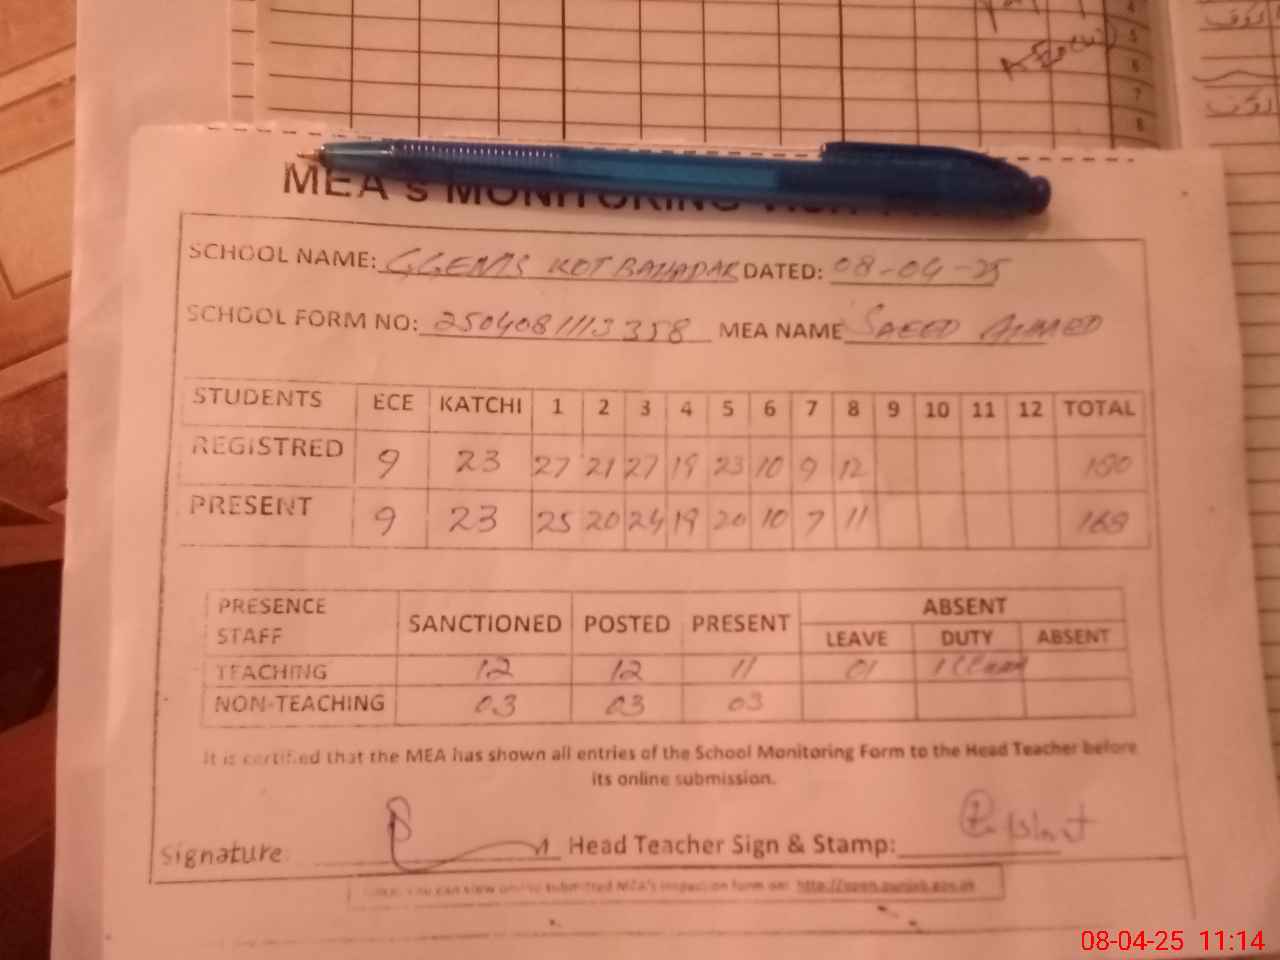 4
5
6
7
8
MEA's MONITORING
SCHOOL NAME: GGEMS KOT BAHADAR DATED: 08-04-25
SCHOOL FORM NO: 2504081113358 MEA NAME SAEED AHMED
STUDENTS ECE KATCHI 1 2 3 4 5 6 7 8 9 10 11 12 TOTAL
REGISTRED 9 23 27 21 27 19 23 10 9 12 180
PRESENT 9 23 25 20 24 19 20 10 7 11 168
PRESENCE STAFF SANCTIONED POSTED PRESENT ABSENT
LEAVE DUTY ABSENT
TEACHING 12 12 11 01
NON-TEACHING 03 03 03
It is certified that the MEA has shown all entries of the School Monitoring Form to the Head Teacher before
its online submission.
Signature: Head Teacher Sign & Stamp:
you can view online submitted MEA's inspection form on: http://open.punjab.gov.pk
08-04-25 11:14